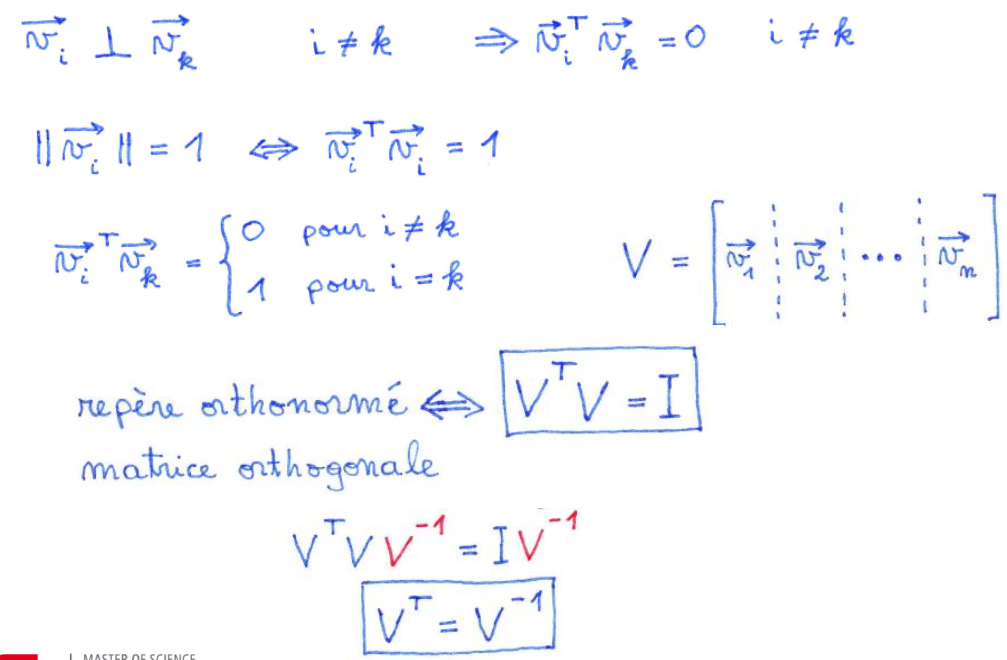 $\vec{v}_i \perp \vec{v}_k \quad i \neq k \quad \Rightarrow \vec{v}_i^T \vec{v}_k = 0 \quad i \neq k$
$\|\vec{v}_i\| = 1 \Leftrightarrow \vec{v}_i^T \vec{v}_i = 1$
$\vec{v}_i^T \vec{v}_k = \begin{cases} 0 & \text{pour } i \neq k \\ 1 & \text{pour } i = k \end{cases} \quad V = \left[ \vec{v}_1 \vdots \vec{v}_2 \vdots \cdots \vdots \vec{v}_n \right]$
repère orthonormé $\Leftrightarrow \boxed{V^T V = I}$
matrice orthogonale
$V^T V V^{-1} = I V^{-1}$
$\boxed{V^T = V^{-1}}$
MASTER OF SCIENCE